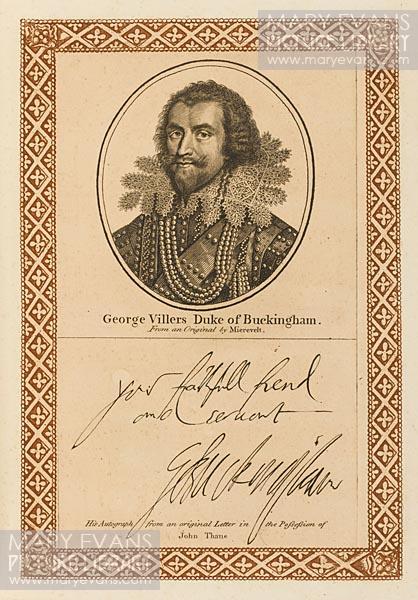 MARY EVANS
PICTURE LIBRARY
www.maryevans.com
George Villers Duke of Buckingham.
From an Original by Mierevelt.
your faithfull frend
and servant
G Buckingham
His Autograph from an original Letter in the Possession of
John Thane
MARY EVANS
PICTURE LIBRARY
www.maryevans.com